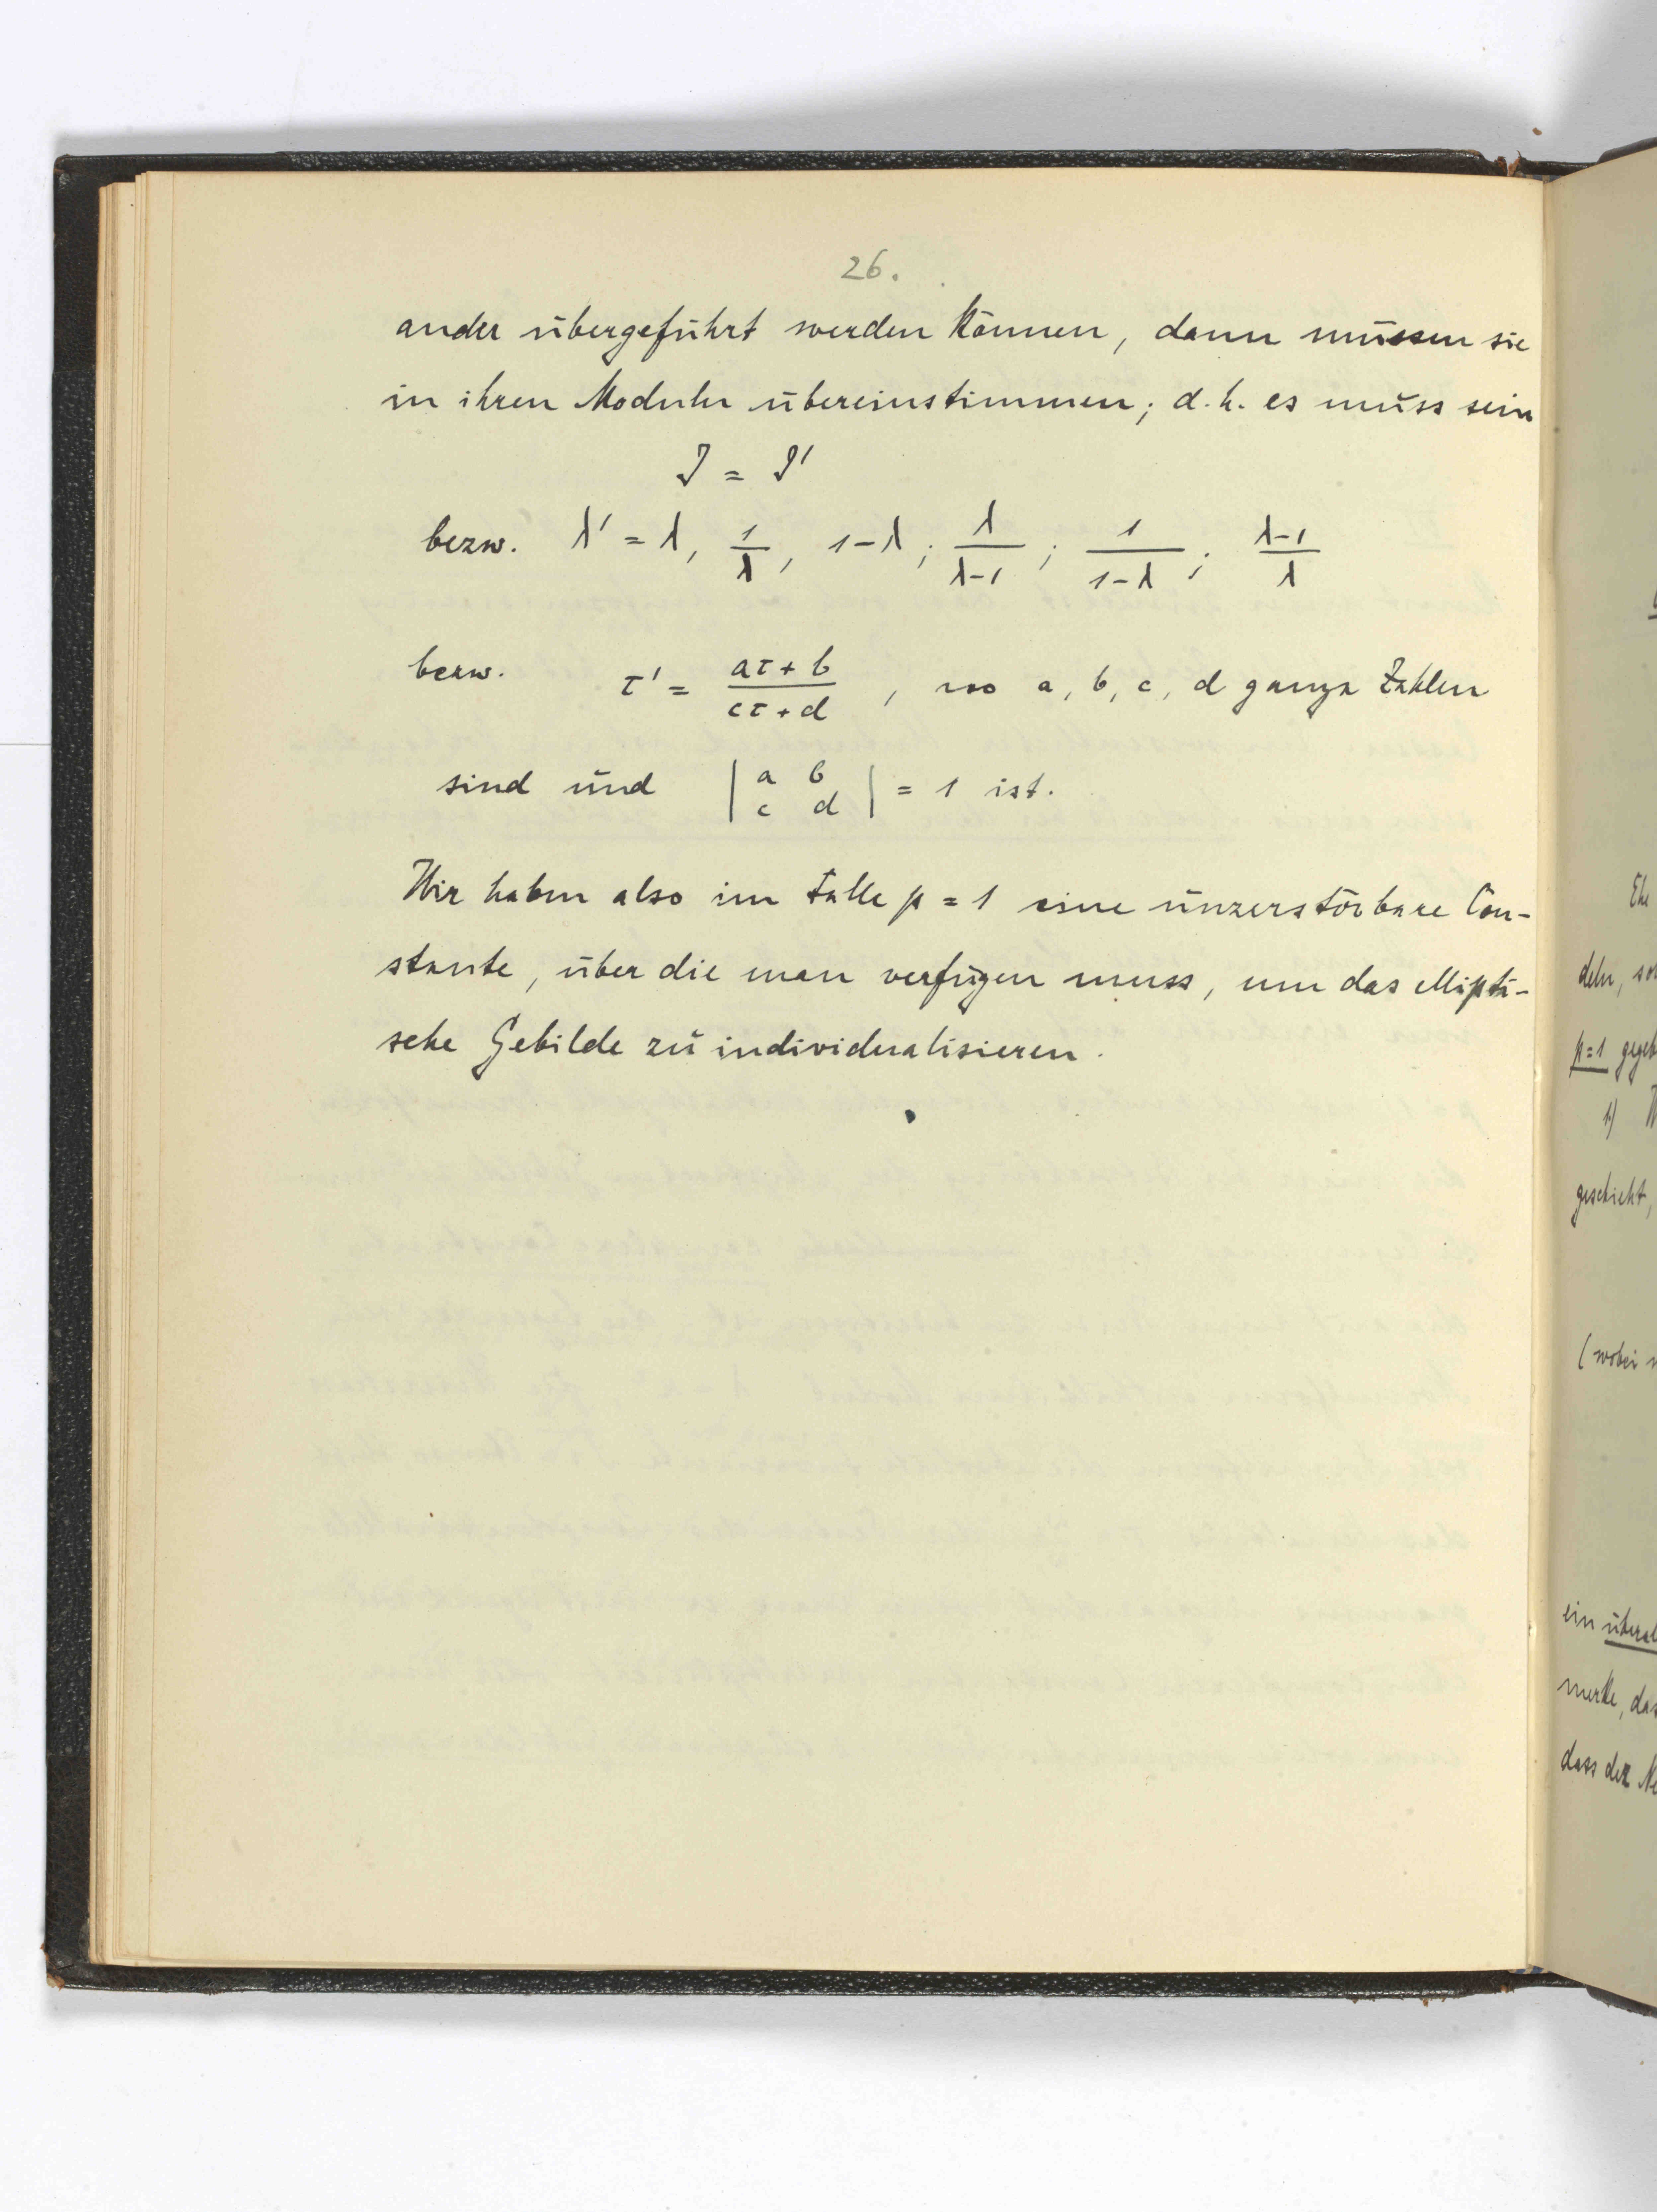 26.
ander übergeführt werden können, dann müssen sie
in ihren Moduln übereinstimmen; d.h. es muss sein
J = J'
bezw. λ' = λ, 1/λ, 1-λ; λ/(λ-1); 1/(1-λ); (λ-1)/λ
bezw. τ' = (aτ+b)/(cτ+d), wo a, b, c, d ganze Zahlen
sind und | a b ; c d | = 1 ist.
Wir haben also im Falle p = 1 eine unzerstörbare Con-
stante, über die man verfügen muss, um das ellipti-
sche Gebilde zu individualisieren.
Ehe
deln, so
p=1 gegeb
1)
geschieht,
(wobei
ein überal
merke, das
dass der Ne